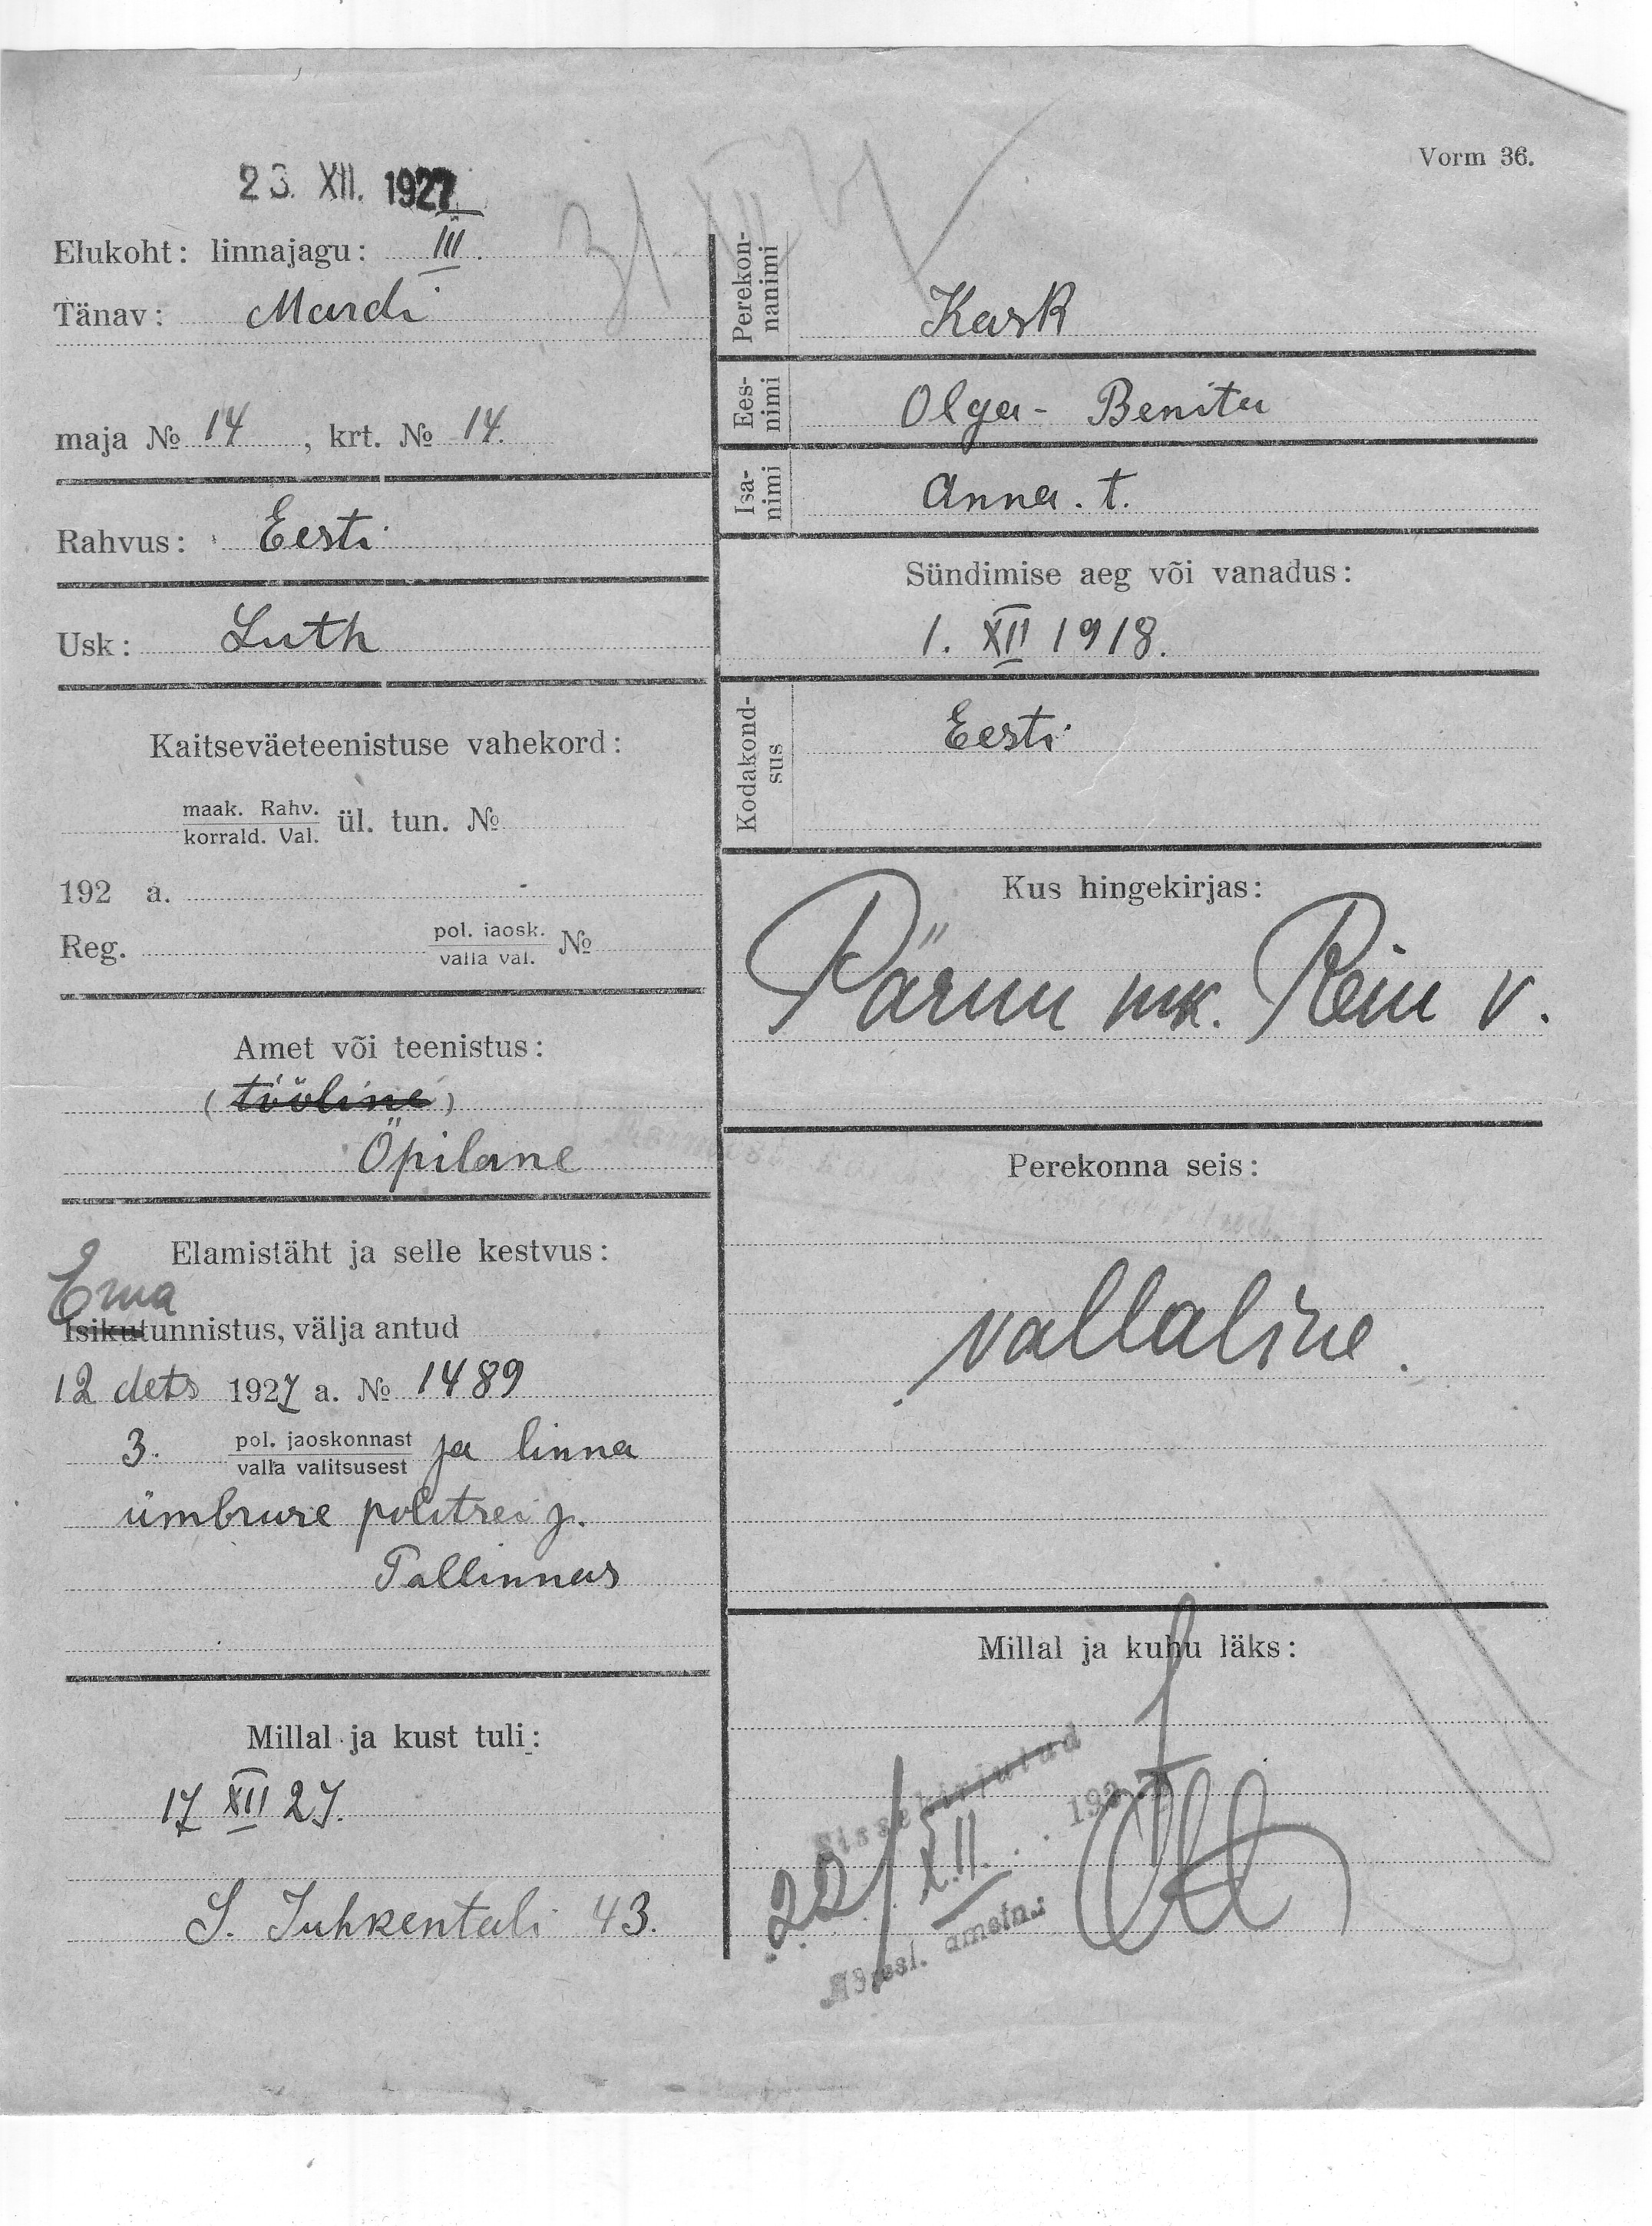 Vorm 36.
23. XII. 1927
31 XII 27
Elukoht: linnajagu: III.
Tänav: Mardi
maja № 14, krt. № 14.
Rahvus: Eesti
Usk: Luth
Kaitseväeteenistuse vahekord:
maak. Rahv.
korrald. Val. ül. tun. №
192 a.
Reg. pol. jaosk.
valla val. №
Amet või teenistus:
(tööline)
Öpilane
Elamistäht ja selle kestvus:
Ema
Isikutunnistus, välja antud
12 dets 1927 a. № 1489
3. pol. jaoskonnast
valla valitsusest ja linna
ümbruse politsei j.
Tallinnas
Millal ja kust tuli:
17 XII 27.
S. Juhkentali 43.
Perekon-
nanimi Kask
Ees-
nimi Olga - Benita
Isa-
nimi Anna. t.
Sündimise aeg või vanadus:
1. XII 1918.
Kodakond-
sus Eesti
Kus hingekirjas:
Pärnu mk. Reiu v.
Perekonna seis:
vallaline.
Millal ja kuhu läks:
Sissekirjutud
22/XII. 192